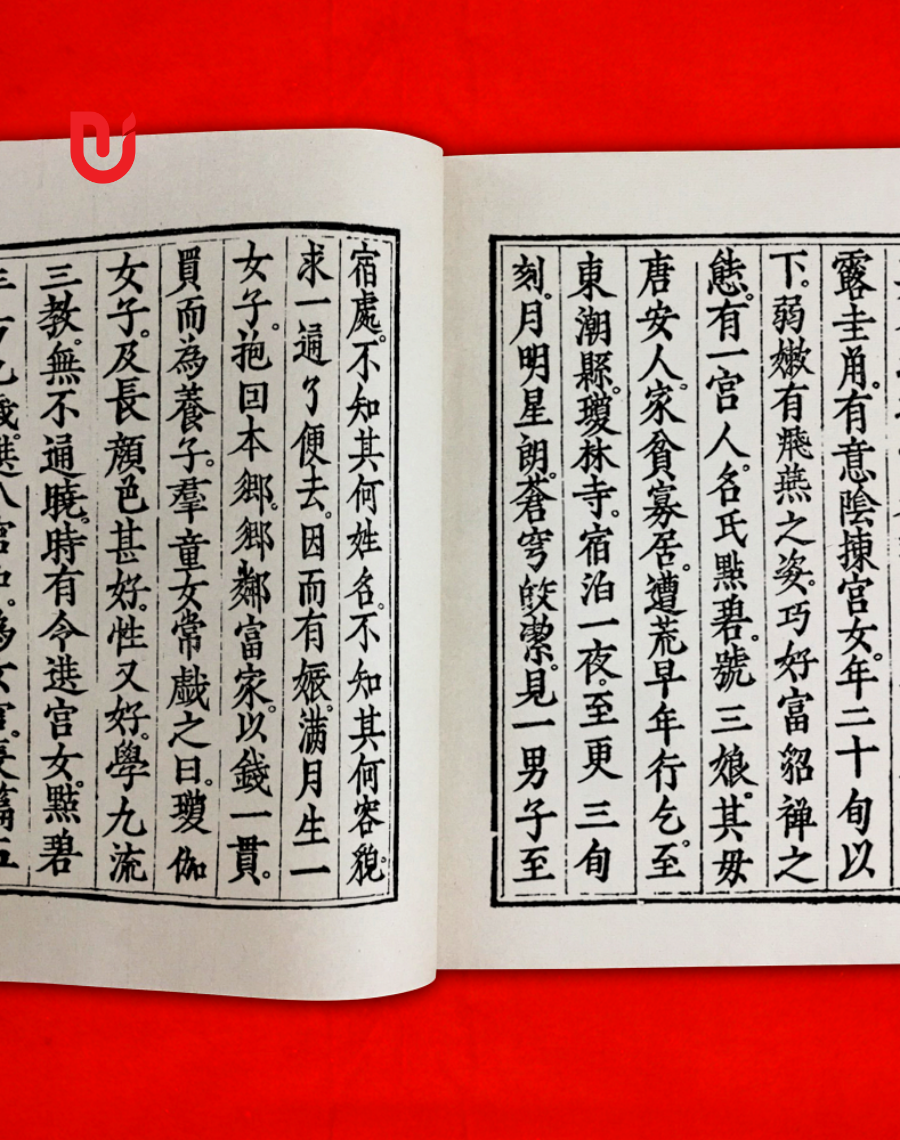 露圭甪。有意陰揀宫女。年二十旬以
下。弱嫩有飛燕之姿。巧好富貂禅之
態。有一宫人。名氏點碧。號三娘。其毋
唐安人。家貧寡居。遭荒早年行乞。至
東潮縣。瓊林寺。宿泊一夜。至更三旬
刻。月明星朗。蒼穹皎潔。見一男子至
宿處。不知其何姓名。不知其何容貌。
求一通了便去。因而有娠。满月生一
女子。抱回本鄉。鄉鄰富家。以錢一貫。
買而為養子。羣童女常戯之曰。瓊伽
女子。及長顔色甚好。性又好。學九流
三教。無不通曉。時有令選宫女。點碧